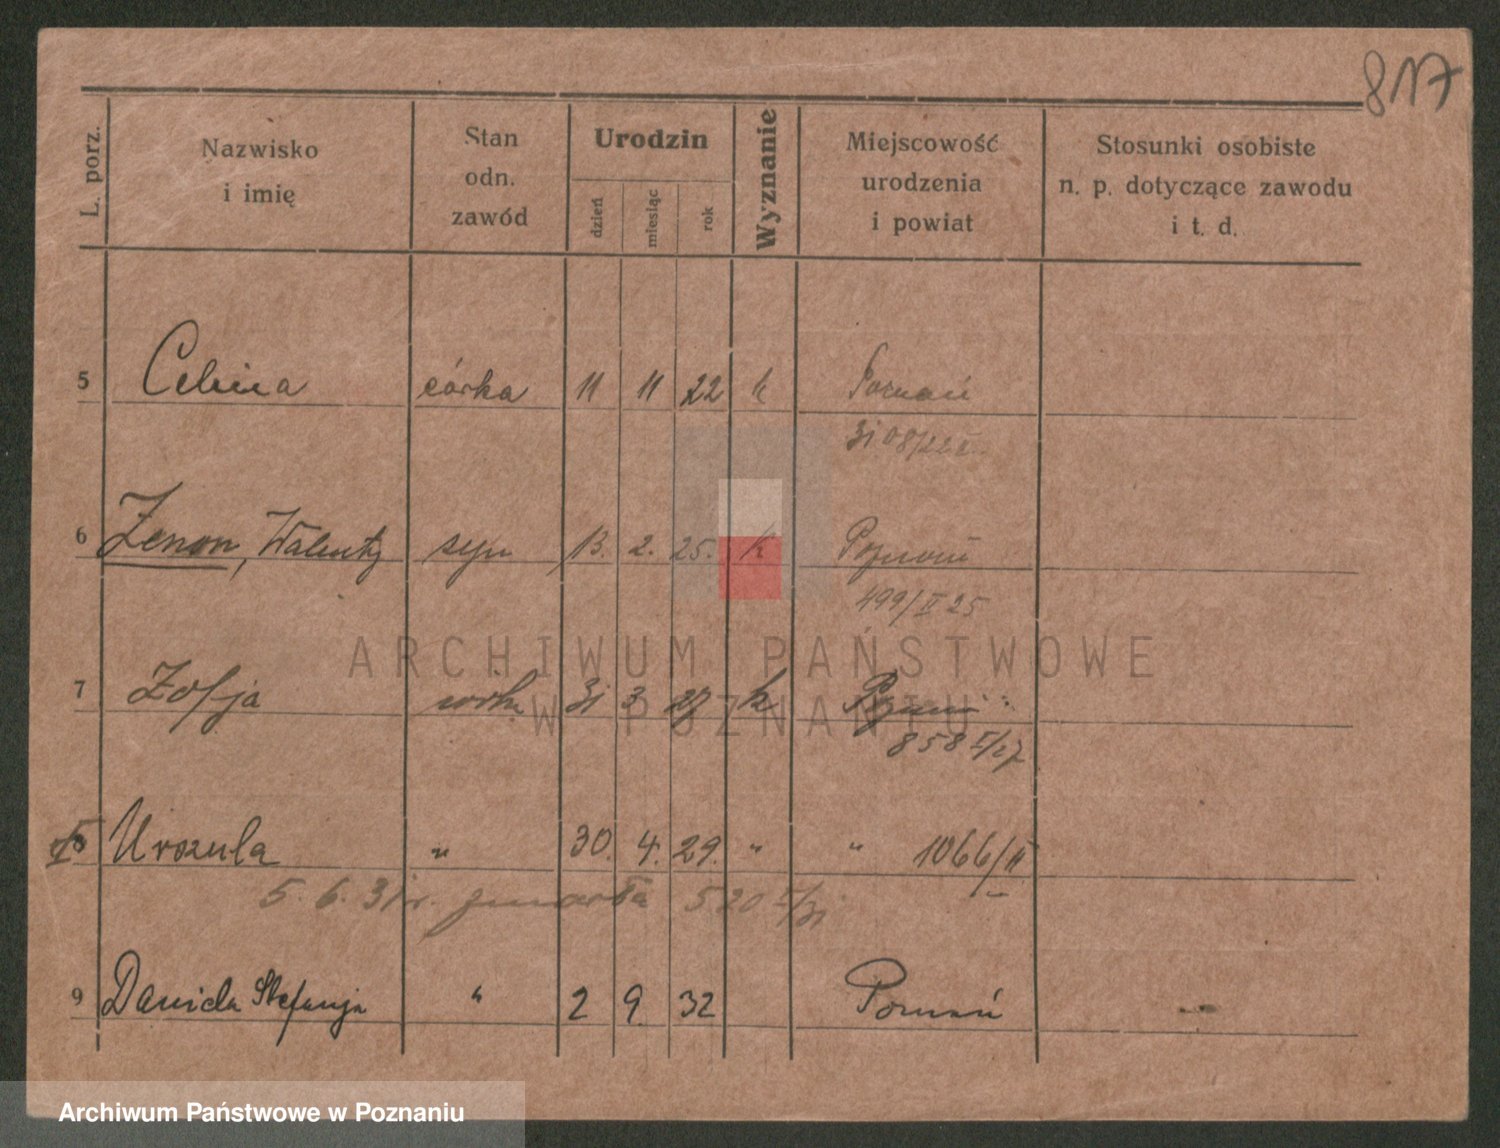 817
L. porz.
Nazwisko i imię
Stan odn. zawód
Urodzin
dzień
miesiąc
rok
Wyznanie
Miejscowość urodzenia i powiat
Stosunki osobiste n. p. dotyczące zawodu i t. d.
5 Celina córka 11 11 22 k Poznań
6 Zenon, Walenty syn 13. 2. 25. k Poznań
499/II 25
ARCHIWUM PAŃSTWOWE
W POZNANIU
7 Zofja córka 31 3 27 k Poznań
858 I/27
Urszula " 30. 4. 29. " " 1066/II
5. 6. 31 r. zmarła 520 I/31
9 Daniela Stefanja " 2 9. 32 Poznań
Archiwum Państwowe w Poznaniu